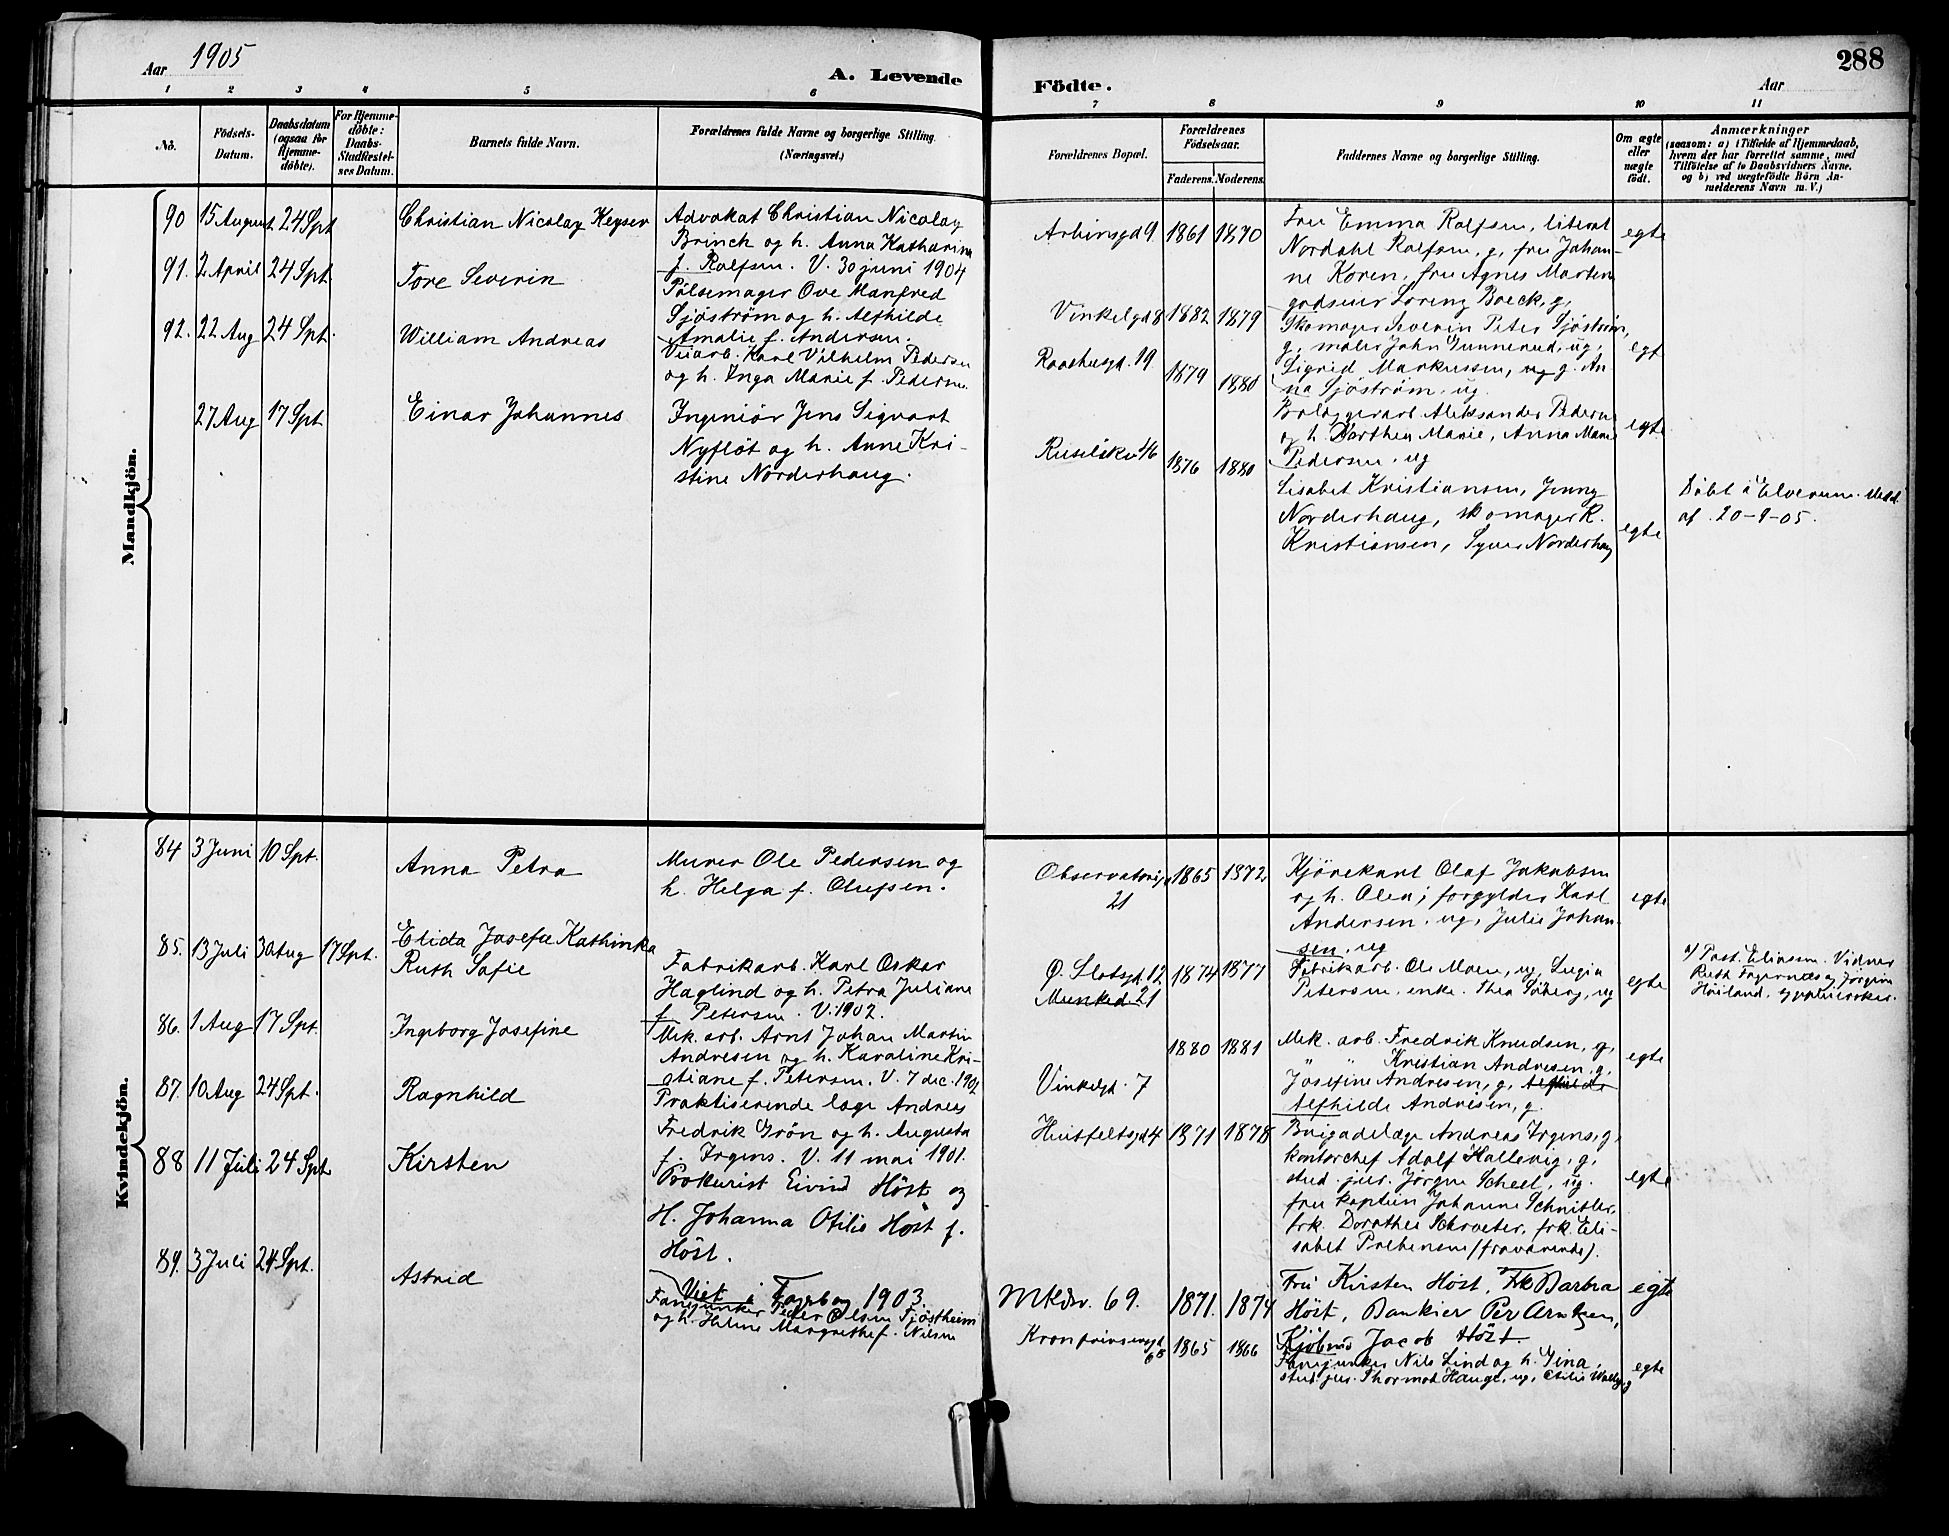 Aar 1905
A. Levende
Födte.
Aar
288
1 2 3 4 5 6 7 8 9 10 11
No.
Födsels-
Datum.
Daabsdatum
(ogsaa for
Hjemme-
döbte).
For Hjemme-
döbte:
Daabs-
Stadfæstel-
ses Datum.
Barnets fulde Navn.
Forældrenes fulde Navne og borgerlige Stilling.
(Næringsvei.)
Forældrenes Bopæl.
Forældrenes
Födselsaar.
Faderens. Moderens.
Faddernes Navne og borgerlige Stilling.
Om ægte
eller
uægte
födt.
Anmærkninger
(saasom: a) i Tilfælde af Hjemmedaab,
hvem der har forrettet samme, med
Tilföielse af to Daabsvidners Navne.
og b) ved uægtefödte Börn An-
melderens Navn m. V.)
Mandkjön.
90 15 August 24 Spt Christian Nicolay Keyser
Advokat Christian Nicolay
Brinch og h. Anna Katharina
f. Rolfsen. V. 30 juni 1904
Arbinsgd 9 1861 1870
Fru Emma Rolfsen, literat
Nordahl Rolfsen, g, fru Johan-
ne Koren, fru Agnes Martens
godseier Lorenz Boeck, g,
egte
91. 2 April 24 Spt Tore Severin
Pølsemager Ove Manfred
Sjöström og h. Alfhilde
Amalie f. Andersen.
Vinkelgd 8 1882 1879
Skomager Severin Peter Sjöström,
g, maler John Gunnerud, ug,
Sigrid Markussen, ug g. An-
na Sjöström, ug
egt
92. 22 Aug 24 Spt. William Andreas
Veiarb. Karl Vilhelm Pedersen
og h. Inga Marie f. Pedersen.
Raadhusgd. 19 1879 1880
Brolæggerarb Aleksander Pedersen
og h. Dorthea Marie, Anna Marie
Pedersen, ug
egte
27 Aug 17 Spt Einar Johannes
Ingeniör Jens Sigvart
Nyflöt og h. Anne Kri-
stine Norderhaug.
Ruselökv 46 1876 1880
Lisabet Kristiansen, Jenny
Norderhaug, skomager R.
Kristiansen, Syver Norderhaug
egte
Döbt i Elverum. Medd.
af 20-9-05.
Kvindekjön.
84 3 Juni 10 Spt. Anna Petra
Murer Ole Pedersen og
h. Helga f. Olufsen.
Observatorigd 1865 1872.
21
Kjörekarl Olaf Jakobsen
og h. Olea; forgylder Karl
Andersen, ug, Julie Johan-
sen, ug
egte
85. 13 Juli 30 Aug 17 Spt. Elida Josefie Kathinka
Ruth Sofie
Fabrikarb. Karl Oskar
Haglind og h. Petra Juliane
f. Petersen. V. 1902.
Ø. Slotsgd. 12 1874 1877
Munked 21
Fabrikarb. Ole Moen, ug, Lugia
Petersen, enke. Thea Søberg, ug
egte
a) Past. Eliassen. Vidner
Ruth Fagernæs og Jörgine
Høiland,
86. 1 Aug 17 Spt. Ingeborg Josefine
Mek. arb. Arnt Johan Martin
Andresen og h. Karoline Kri-
stiane f. Petersen. V. 7 dec. 1902
Vinkelgd. 7
1880 1881
Mek. arb. Fredrik Knudsen, g,
" " Kristian Andresen, g,
Josefine Andresen, g, Alfhilde
Alfhilde Andresen, g.
egte
87. 10 Aug 24 Spt. Ragnhild
Praktiserende læge Andreas
Fredrik Grön og h. Augusta
f. Irgens. V. 11 mai 1901.
Huitfeltsgd 4 1871 1878
Brigadelæge Andreas Irgens, g,
kontorchef Adolf Hallevig, g,
stud. jur. Jörgen Scheel, ug.
fru kaptein Johanne Schnitler,
frk. Dorothea Schroeter, frk. Eli-
sabet Prebensen (fraværende).
egte
88 11 Juli 24 Spt. Kirsten
Prokurist Eivind Höst og
H. Johanna Otilie Höst f.
Höst.
Viet i Farsberg 1903.
Mkdv. 69. 1871. 1874
Fru Kirsten Höst, Frk Barbra
Höst, Bankier Per Arntzen,
Kjöbmd Jacob Höst.
egte
89. 3 Juli 24 Spt. Astrid
Fanejunker Peder Olsen Fjöstheim
og h. Helene Margrethe f. Nilsen
Kronprinsensgd
6b 1865 1866
Fanejunker Nils Lind og h. Gina,
stud. jur. Thormod Hauge, ug,
egte